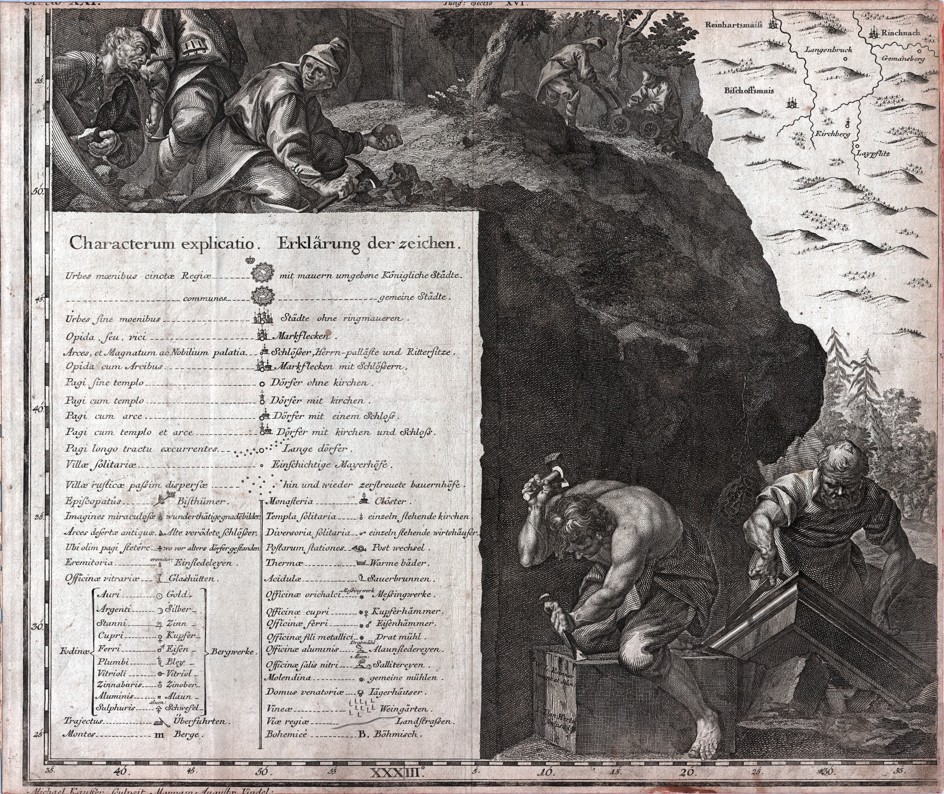 XVI.
Reinhartsmaiß
Rinchnach
Langenbruck
Gemaneberg
Bischoffsmais
Kirchberg
Laypflitz
Characterum explicatio. Erklärung der zeichen.
Urbes mœnibus cinctæ Regiæ mit mauern umgebene Königliche Städte.
communes gemeine Städte.
Urbes sine moenibus Städte ohne ringmaueren.
Opida, seu, vici Markflecken.
Arces, et Magnatum ac Nobilium palatia. Schlößer, Herrn-palläste und Rittersitze.
Opida cum Arcibus Markflecken mit Schlößern.
Pagi sine templo Dörfer ohne kirchen.
Pagi cum templo Dörfer mit kirchen.
Pagi cum arce Dörfer mit einem Schloß.
Pagi cum templo et arce Dörfer mit kirchen und Schloß.
Pagi longo tractu excurrentes. Lange dörfer.
Villæ solitariæ Einschichtige Mayerhöfe.
Villæ rusticæ passim dispersæ hin und wieder zerstreuete bauernhöfe.
Episcopatus Bisthümer.
Imagines miraculosæ wunderthätigegnadēbilder.
Arces desertæ antiquæ. Alte verödete schlößer.
Ubi olim pagi stetere wo vor alters dörfer gestanden
Eremitoria Einsiedeleyen.
Officinæ vitrariæ Glashütten.
Fodinæ Bergwerke.
Auri Gold.
Argenti Silber
Stanni Zinn
Cupri Kupfer
Ferri Eisen
Plumbi Bley
Vitrioli Vitriol
Zinnabaris Zinober.
Aluminis Alaun
Sulphuris Schwefel
Trajectus Überfuhrten.
Montes m Berge.
Monasteria Clöster.
Templa solitaria einzeln stehende kirchen
Diversoria solitaria einzeln stehende wirtshäuser.
Postarum stationes Post wechsel.
Thermæ Warme bäder.
Acidulæ Sauerbrunnen.
Officinæ orichalci Meßingwerke.
Officinæ cupri Kupferhämmer.
Officinæ ferri Eisenhämmer.
Officinæ fili metallici Drat mühl.
Officinæ aluminis Alaunsiedereyen.
Officinæ salis nitri Sallitereyen.
Molendina gemeine mühlen.
Domus venatoriæ Jägerhäuser.
Vineæ Weingärten.
Viæ regiæ Landstraßen.
Bohemicè B. Böhmisch.
50.
45
40
35
30
25
35. 40. 45. 50. 55. XXXIII°. 5. 10. 15. 20. 25. 30. 35.
Michael Kauffer sculpsit